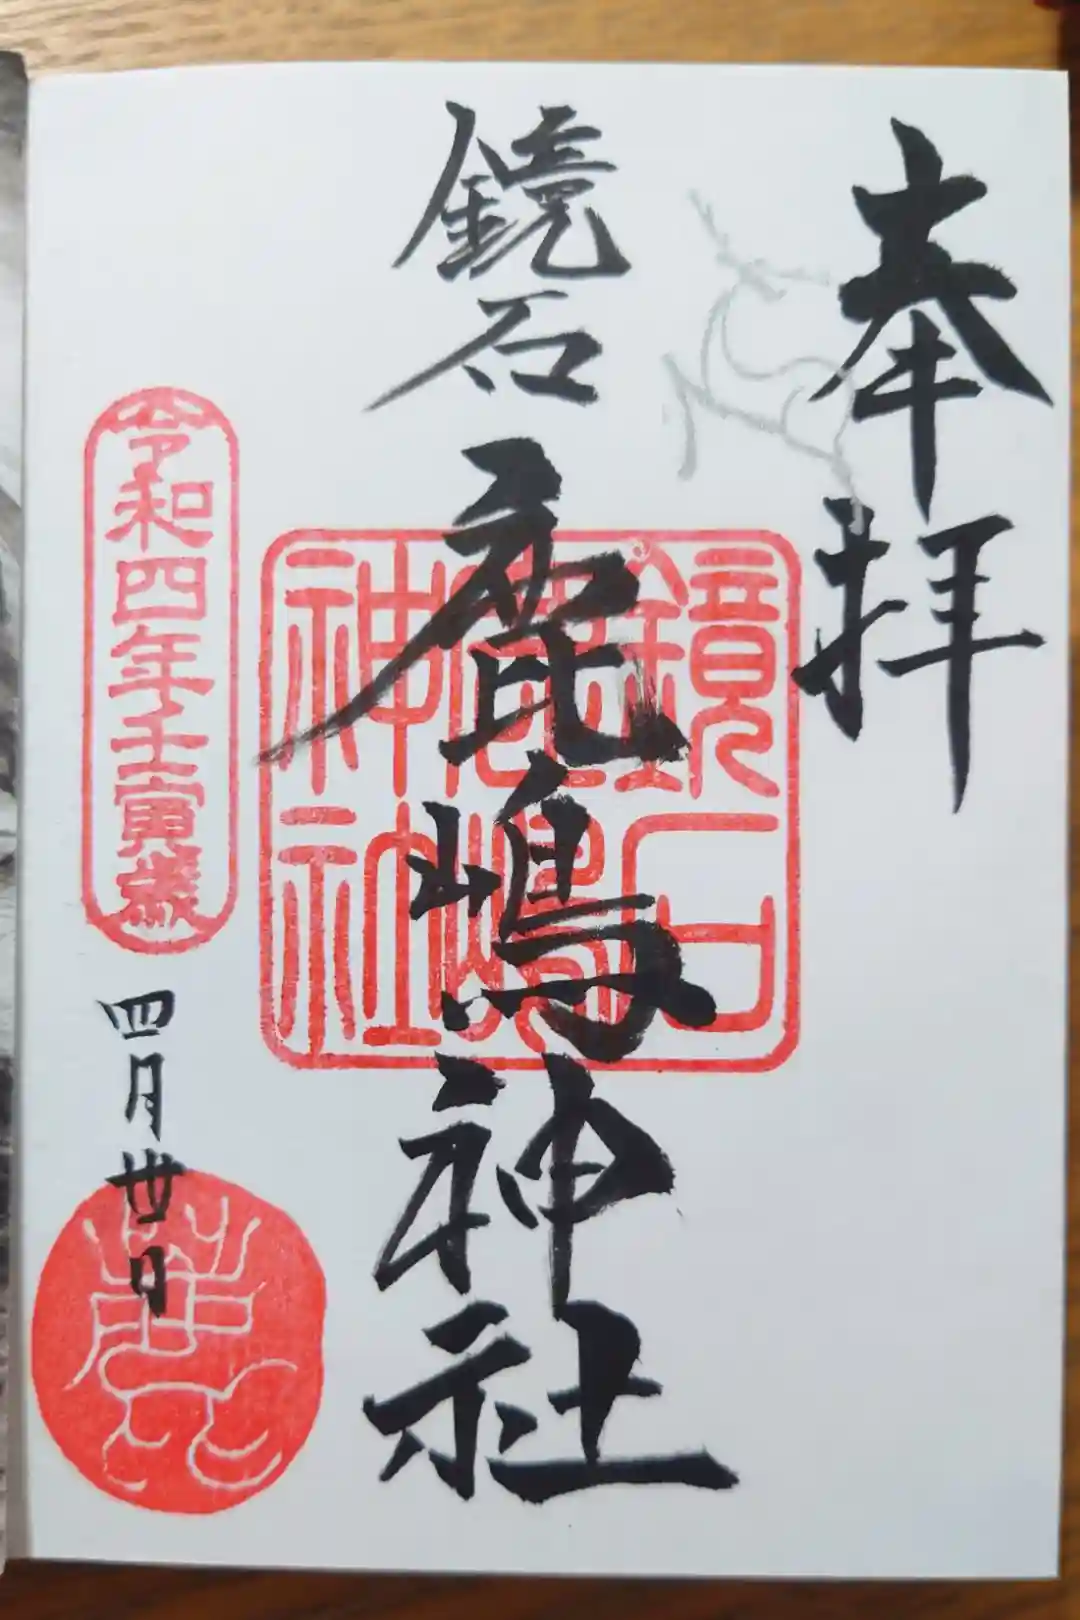 奉拝
鏡石
鹿嶋神社
鏡石
鹿嶋
神社
令和四年壬寅歳
四月廿日